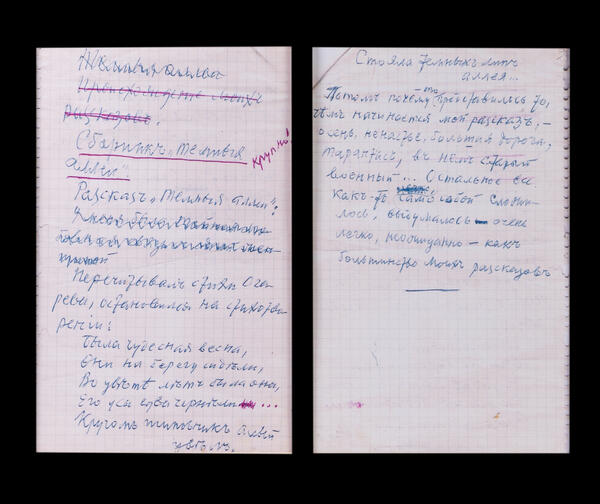 Темныя аллеи
Происхожденiе моихъ
разсказовъ.
Сборникъ „Темныя
крупно!
аллеи":
Разсказъ „Темныя аллеи":
Перечитывалъ стихи Ога-
рева, остановился на стихотво-
ренiи:
Была чудесная весна,
Они на берегу сидѣли,
Во цвѣтѣ лѣтъ была она,
Его усы едва чернѣли...
Кругомъ шиповникъ алый
цвѣлъ,
Стояла темныхъ липъ
аллея...
Потомъ почему-то представилось то,
чѣмъ начинается мой разсказъ, —
осень, ненастье, большая дорога,
тарантасъ, въ немъ старый
военный... Остальное все
какъ-то само собой сложи-
лось, выдумалось — очень
легко, неожиданно — какъ
большинство моихъ разсказовъ